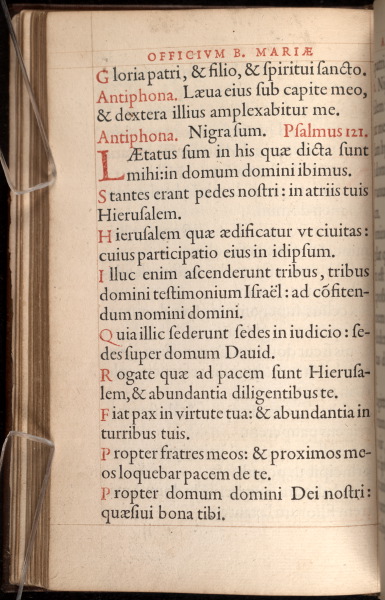 OFFICIVM B. MARIÆ
Gloria patri, & filio, & ſpiritui ſancto.
Antiphona. Læua eius ſub capite meo,
& dextera illius amplexabitur me.
Antiphona. Nigra ſum. Pſalmus 121.
LÆtatus ſum in his quæ dicta ſunt
mihi: in domum domini ibimus.
Stantes erant pedes noſtri: in atriis tuis
Hieruſalem.
Hieruſalem quæ ædificatur vt ciuitas:
cuius participatio eius in idipſum.
Illuc enim aſcenderunt tribus, tribus
domini teſtimonium Iſraël: ad cõfiten-
dum nomini domini.
Quia illic ſederunt ſedes in iudicio: ſe-
des ſuper domum Dauid.
Rogate quæ ad pacem ſunt Hieruſa-
lem, & abundantia diligentibus te.
Fiat pax in virtute tua: & abundantia in
turribus tuis.
Propter fratres meos: & proximos me-
os loquebar pacem de te.
Propter domum domini Dei noſtri:
quæſiui bona tibi.